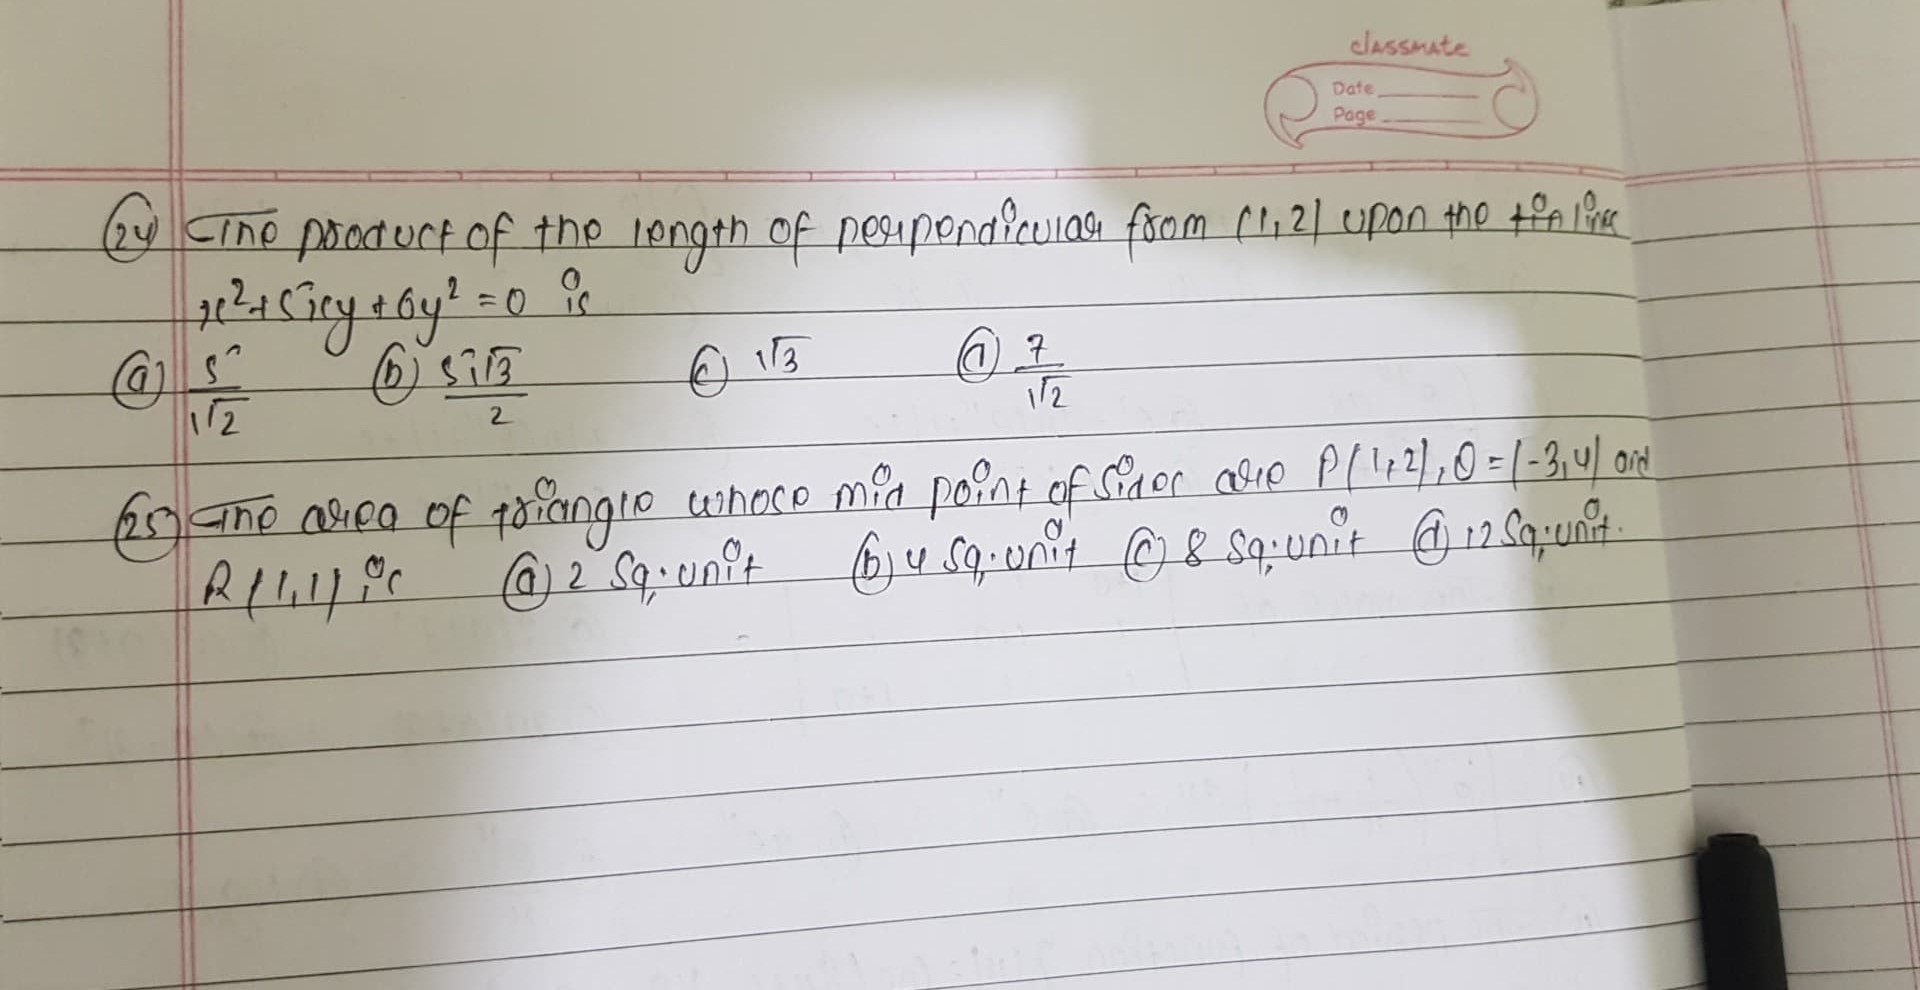 classmate
Date
Page
(24) The product of the length of perpendicular from (1,2) upon the lines
x²+5xy+6y² = 0 is
(a) 5/√2 (b) 5√3/2 (c) √3 (d) 7/√2
(25) The area of triangle whose mid point of sides are P(1,2), Q=(-3,4) and
R(1,1) is (a) 2 Sq. unit (b) 4 Sq. unit (c) 8 Sq. unit (d) 12 Sq. unit.